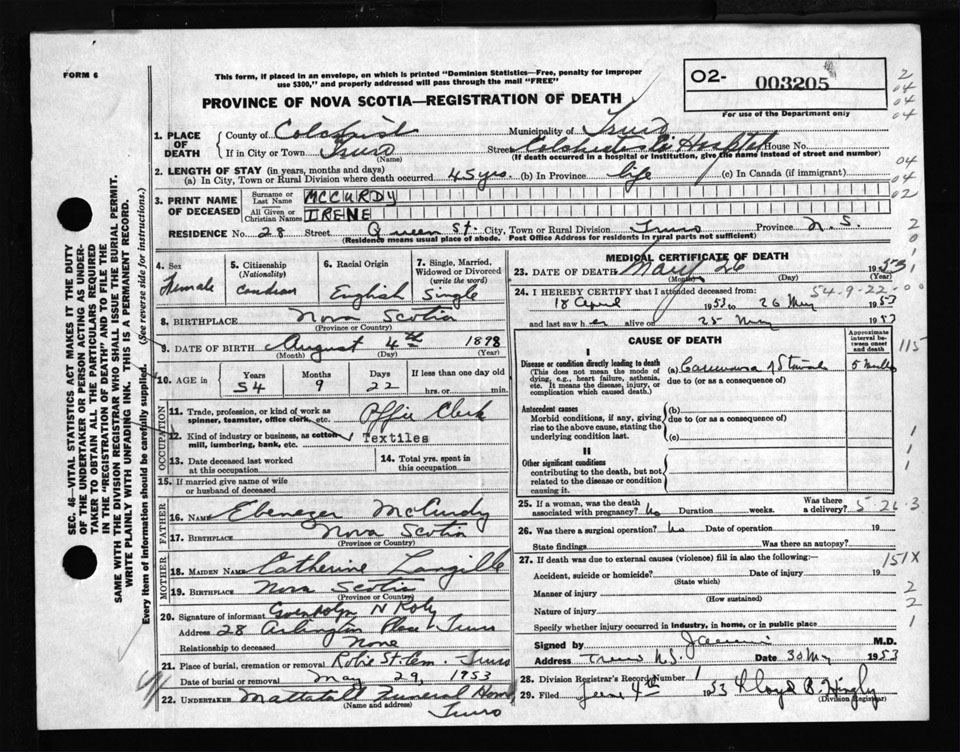 FORM 6
This form, if placed in an envelope, on which is printed "Dominion Statistics—Free, penalty for improper
use $300," and properly addressed will pass through the mail "FREE"
O2- 003205
For use of the Department only
PROVINCE OF NOVA SCOTIA—REGISTRATION OF DEATH
1. PLACE OF DEATH
County of Colchester Municipality of Truro
If in City or Town Truro Street Colchester Co Hospital House No.
(Name) (If death occurred in a hospital or institution, give the name instead of street and number)
2. LENGTH OF STAY (in years, months and days)
(a) In City, Town or Rural Division where death occurred 45 yrs. (b) In Province life (c) In Canada (if immigrant)
3. PRINT NAME OF DECEASED
Surname or Last Name MCCURDY
All Given or Christian Names IRENE
RESIDENCE No. 28 Street Queen St. City, Town or Rural Division Truro Province N.S.
(Residence means usual place of abode. Post Office Address for residents in rural parts not sufficient)
SEC. 46—VITAL STATISTICS ACT MAKES IT THE DUTY
OF THE UNDERTAKER OR PERSON ACTING AS UNDER-
TAKER TO OBTAIN ALL THE PARTICULARS REQUIRED
IN THE "REGISTRATION OF DEATH" AND TO FILE THE
SAME WITH THE DIVISION REGISTRAR WHO SHALL ISSUE THE BURIAL PERMIT.
WRITE PLAINLY WITH UNFADING INK. THIS IS A PERMANENT RECORD.
Every item of Information should be carefully supplied. (See reverse side for instructions.)
4. Sex
Female
5. Citizenship
(Nationality)
Canadian
6. Racial Origin
English
7. Single, Married,
Widowed or Divorced
(write the word)
Single
8. BIRTHPLACE Nova Scotia
(Province or Country)
9. DATE OF BIRTH August 4th 1898
(Month) (Day) (Year)
10. AGE in
Years Months Days If less than one day old
54 9 22 hrs. or min.
OCCUPATION
11. Trade, profession, or kind of work as
spinner, teamster, office clerk, etc. Office Clerk
12. Kind of industry or business, as cotton
mill, lumbering, bank, etc. Textiles
13. Date deceased last worked
at this occupation
14. Total yrs. spent in
this occupation
15. If married give name of wife
or husband of deceased
FATHER
16. NAME Ebenezer McCurdy
17. BIRTHPLACE Nova Scotia
(Province or Country)
MOTHER
18. MAIDEN NAME Catherine Langille
19. BIRTHPLACE Nova Scotia
(Province or Country)
20. Signature of informant Gwendolyn N
Address 28 Arlington Place Truro
Relationship to deceased None
21. Place of burial, cremation or removal Robie St. Cem. Truro
Date of burial or removal May 29, 1953
22. UNDERTAKER Mattatall Funeral Home
(Name and address) Truro
MEDICAL CERTIFICATE OF DEATH
23. DATE OF DEATH May 26 1953
(Month) (Day) (Year)
24. I HEREBY CERTIFY that I attended deceased from: 54-9-22-00
18 April 1953 to 26 May 1953
and last saw her alive on 25 May 1953
CAUSE OF DEATH
Approximate
interval between
onset and death
I
Disease or condition directly leading to death
(This does not mean the mode of
dying, e.g., heart failure, asthenia,
etc. It means the disease, injury, or
complication which caused death.)
(a) Carcinoma of Stomach 5 months
due to (or as a consequence of)
Antecedent causes
Morbid conditions, if any, giving
rise to the above cause, stating the
underlying condition last.
(b)
due to (or as a consequence of)
(c)
II
Other significant conditions
contributing to the death, but not
related to the disease or condition
causing it.
25. If a woman, was the death
associated with pregnancy? No Duration weeks. Was there
a delivery? 5-26-3
26. Was there a surgical operation? No Date of operation 19
State findings Was there an autopsy?
27. If death was due to external causes (violence) fill in also the following: 151X
Accident, suicide or homicide? Date of injury 19
(State which)
Manner of injury
(How sustained)
Nature of injury
Specify whether injury occurred in industry, in home, or in public place
Signed by M.D.
Address Truro N.S. Date 30 May 1953
28. Division Registrar's Record Number 1
29. Filed June 4th 1953 Lloyd R.
(Division Registrar)
2
04
04
04
04
04
02
2
0
0
1
115
1
1
1
2
2
1